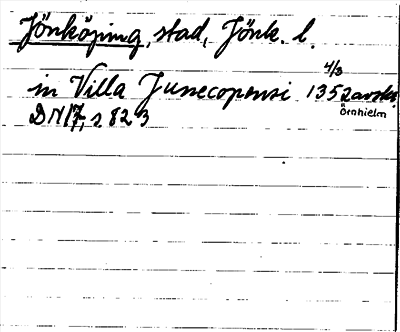 Jönköping, stad, Jönk. l.
in Villa Junecopensi 1352 4/3 avskr. Örnhielm
DN 17, s 823